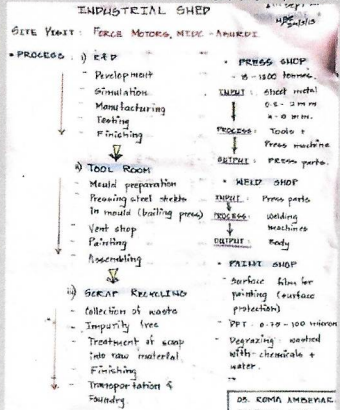 INDUSTRIAL SHED
SITE VISIT : FORCE MOTORS, MIDC - AKURDI
• PROCESS : i) R&D
- Development
- Simulation
- Manufacturing
- Testing
- Finishing
ii) TOOL ROOM
- Mould preparation
- Pressing steel sheets
in mould (bailing press)
- Vent shop
- Painting
- Assembling
SCRAP RECYCLING
- Collection of waste
- Impurity free
- Treatment of scrap
into raw material
- Finishing
- Transportation &
Foundry.
• PRESS SHOP
1800 tonnes.
INPUT : Sheet metal
PROCESS : Tools +
Press machine
OUTPUT : Press parts.
• WELD SHOP
INPUT : Press parts
PROCESS : Welding
machines
OUTPUT : Body
• PAINT SHOP
- Surface film for
painting (surface
protection)
- DFT : 0.70 - 100 micron
- Degrazing : washed
with chemicals +
water.
03. ROMA AMBEKAR